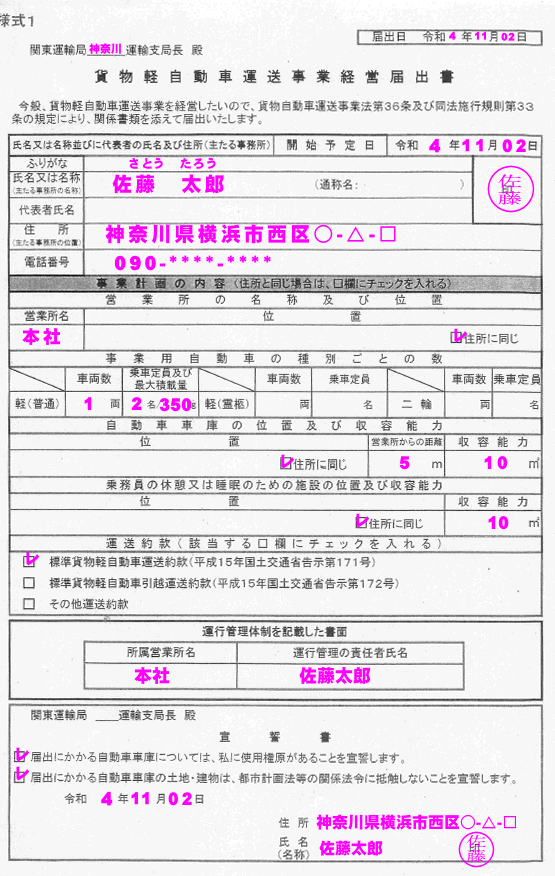 様式1
届出日 令和4年11月02日
関東運輸局神奈川運輸支局長 殿
貨物軽自動車運送事業経営届出書
今般、貨物軽自動車運送事業を経営したいので、貨物自動車運送事業法第36条及び同法施行規則第33
条の規定により、関係書類を添えて届出いたします。
氏名又は名称並びに代表者の氏名及び住所(主たる事務所) 開始予定日 令和 4 年11月02日
ふりがな さとう たろう
氏名又は名称 佐藤 太郎 (通称名: )
(主たる事務所の名称)
佐藤
代表者氏名
住所 神奈川県横浜市西区○-△-□
(主たる事務所の位置)
電話番号 090-****-****
事業計画の内容(住所と同じ場合は、口欄にチェックを入れる)
営業所の名称及び位置
営業所名 位置
本社 ☑住所に同じ
事業用自動車の種別ごとの数
車両数 乗車定員及び最大積載量 車両数 乗車定員 車両数 乗車定員
軽(普通) 1 両 2 名/350kg 軽(霊柩) 両 名 二輪 両 名
自動車車庫の位置及び収容能力
位置 営業所からの距離 収容能力
☑住所に同じ 5 m 10 ㎡
乗務員の休憩又は睡眠のための施設の位置及び収容能力
位置 収容能力
☑住所に同じ 10 ㎡
運送約款(該当する口欄にチェックを入れる)
☑ 標準貨物軽自動車運送約款(平成15年国土交通省告示第171号)
□ 標準貨物軽自動車引越運送約款(平成15年国土交通省告示第172号)
□ その他運送約款
運行管理体制を記載した書面
所属営業所名 運行管理の責任者氏名
本社 佐藤太郎
関東運輸局 ___運輸支局長 殿
宣誓書
☑届出にかかる自動車車庫については、私に使用権原があることを宣誓します。
☑届出にかかる自動車車庫の土地・建物は、都市計画法等の関係法令に抵触しないことを宣誓します。
令和 4 年11月02日
住所 神奈川県横浜市西区○-△-□
氏名 佐藤太郎
(名称)
佐藤